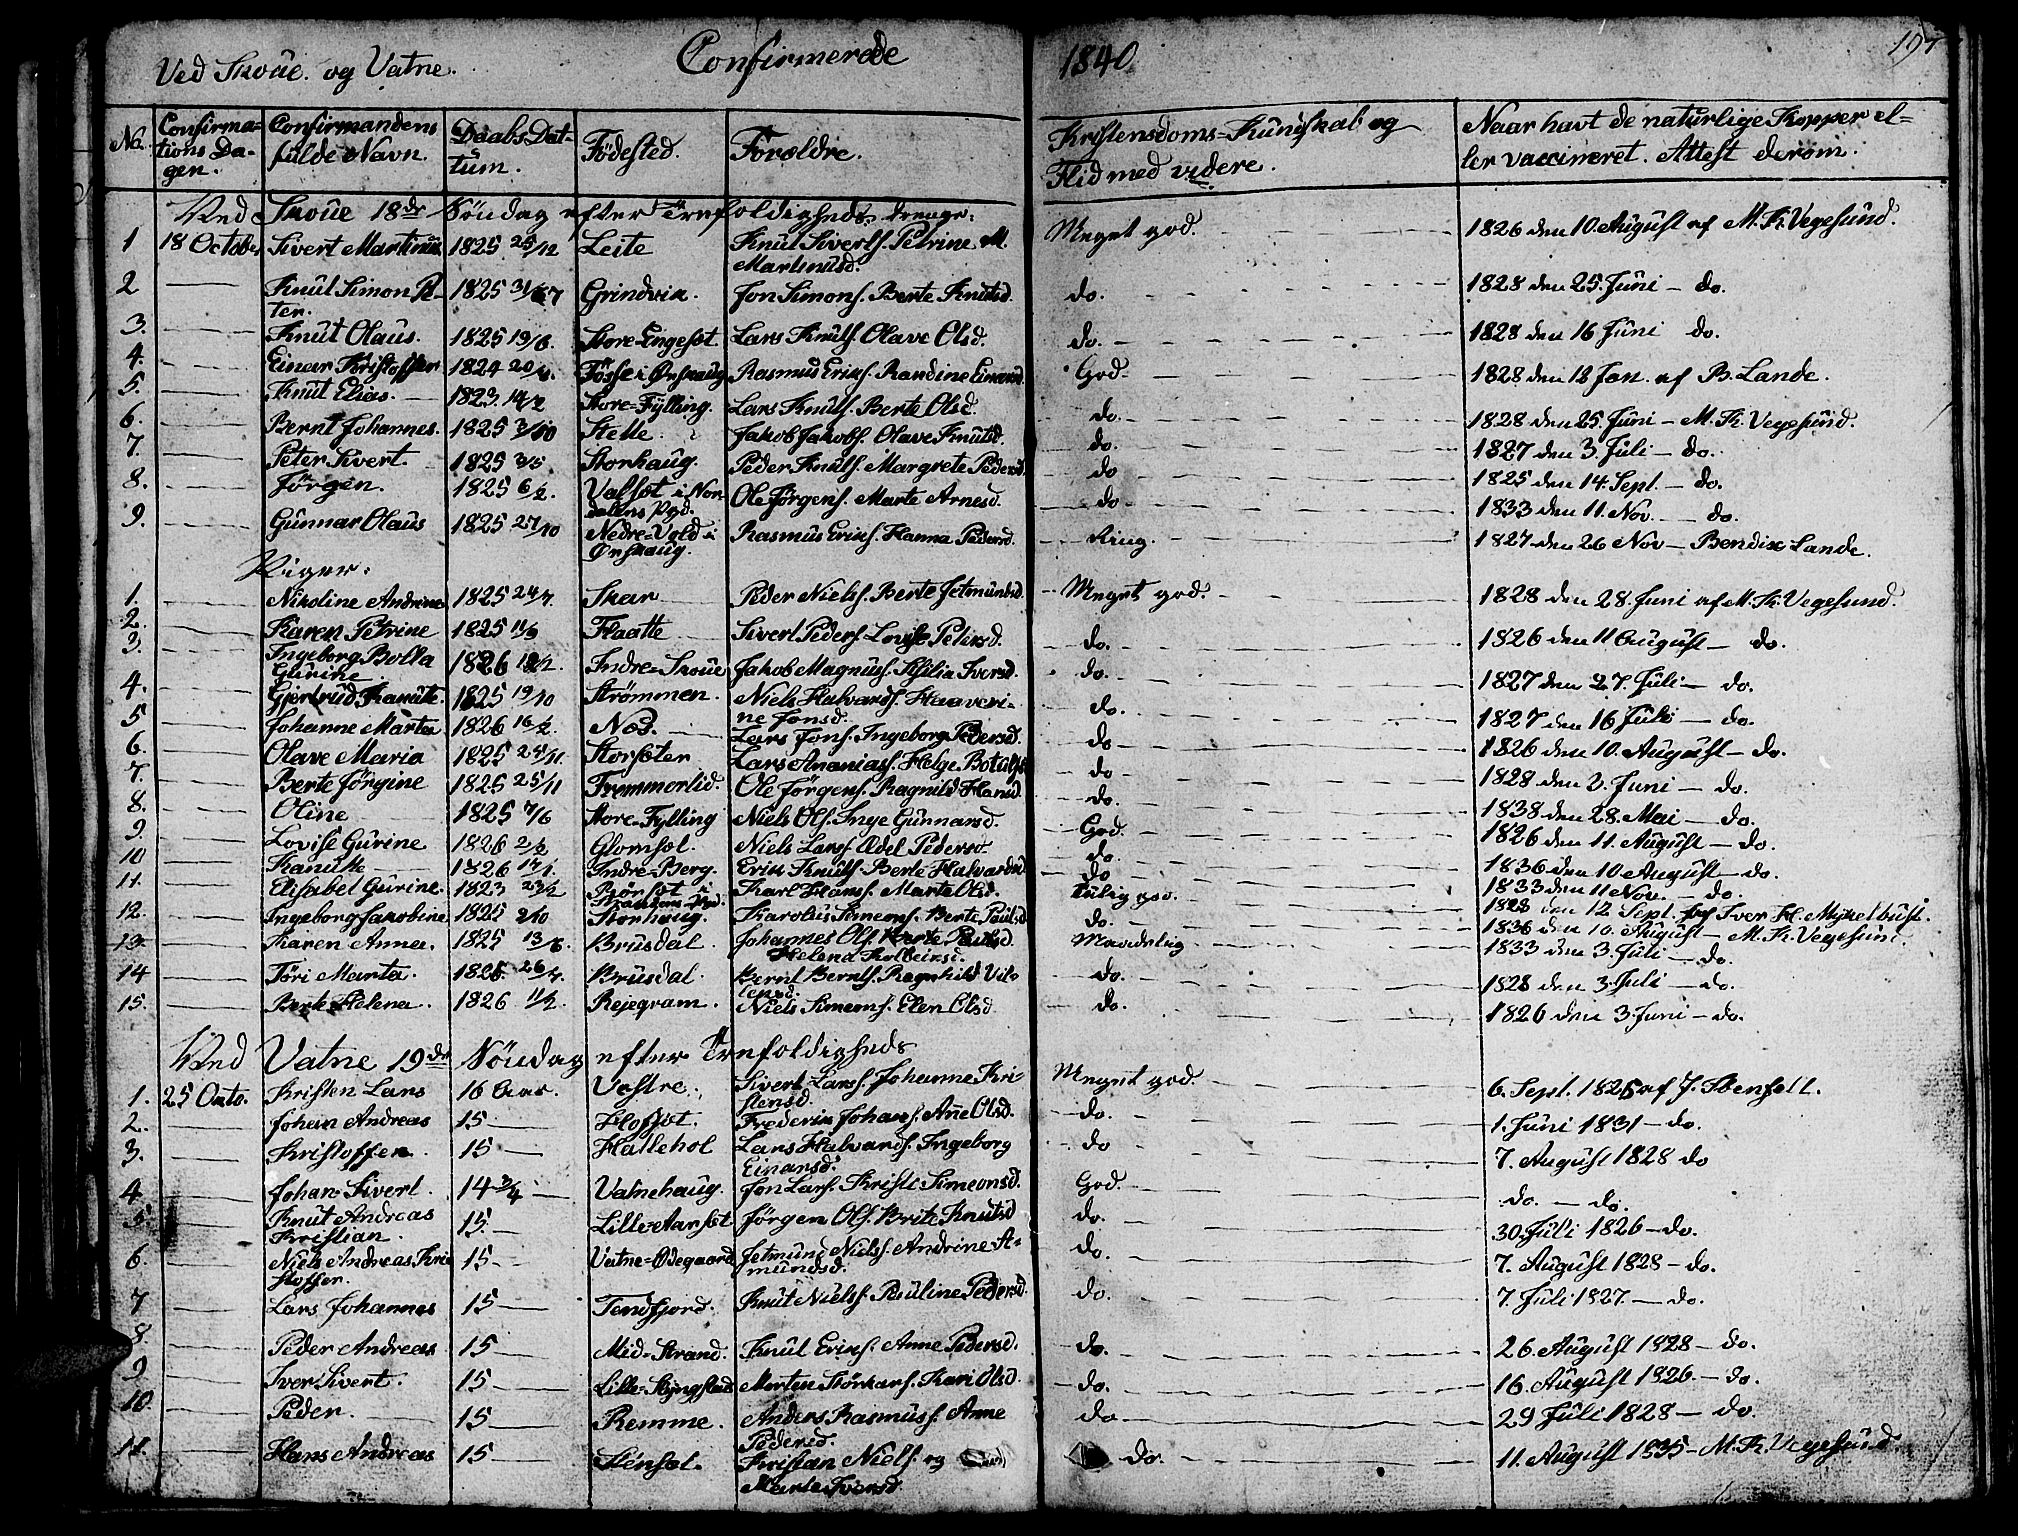 Ved Skoue og Vatne. Confirmerede 1840 197
No. Confirma- Confirmandens Daabs Dat- Födested. Forældre. Kristensdoms-Kundskab og Naar havt de naturlige Kopper el-
tions Da- fulde Navn. tum. Flid med videre. ler vaccineret. Attest derom.
gen.
Ved Skoue 18de Söndag efter Trefoldigheds. drenge.
1 18 October Sivert Martinus 1825 25/12 Leite Knut Siverts. Petrine M. Meget god. 1826 den 10. August af M. K. Vegesund.
Martinusd.
2 Knut Simon Pe- 1825 Grindvik. Jon Simons. Berte Knutsd. do. 1828 den 25. Juni - do.
ter.
3. Knut Olaus. 1825 19/6. Store-Engeset. Lars Knuts. Olave Olsd. do. 1828 den 16 Juni do.
4. Einar Kristoffer 1824 Fösse i Ørskaug Rasmus Eriks. Randine Einarsd. God. 1828 den 18 Jan. af B. Lande.
5. Knut Elias. 1823. 14/2 Store-Fylling. Lars Knuts. Berte Olsd. do. 1828 den 25. Juni - M. K. Vegesund.
6. Bernt Johannes. 1825 3/10 Stette. Jakob Jakobs. Olave Knutsd. do. 1827 den 3. Juli - do.
7. Peter Sivert. 1825 3/5 Storhaug. Peder Knuts. Margrete Pedersd. do 1825 den 14. Sept. - do.
8. Jörgen. 1825 6/2. Valset i Nor- Ole Jörgens. Marte Arnesd. do 1833 den 11. Nov. - do.
dalens Pgd.
9. Gunnar Olaus 1825 27/10 Nedre-Vold i Rasmus Eriks. Hanna Pedersd. Ring. 1827 den 26 Nov - Bendix Lande.
Ørskaug.
Piger.
1. Nikoline Andrine 1825 24/7. Skar Peder Niels. Berte Jetmundsd. Meget god. 1828 den 28. Juni af M. K. Vegesund.
2. Karen Petrine 1825 11/9 Flaatte Sivert Peders. Lovise Petersd. do. 1826 den 11 August - do.
3. Ingeborg Bolla 1826 Indre-Skoue Jakob Magnus. Iversd. do. 1827 den 27. Juli - do.
Gurine
4. Gjertrud Kanute. 1825 19/10 Strömmen. Niels Halvards. Haaveri- do. 1827 den 16 Juli - do.
ne Jonsd.
5. Johanne Marta 1826 16/2. Nos. Lars Jons. Ingeborg Pedersd. do 1826 den 10. August - do.
6. Olave Maria 1825 25/11. Storseter Lars Ananias. Helge Botolfs do 1828 den 2. Juni - do.
7. Berte Jörgine 1825 25/11 Fremmerlid. Ole Jörgens. Ragnild Hansd. do. 1838 den 28. Mai - do.
8. Oline 1825 7/6 Store-Fylling Niels Ols. Inge Gunnarsd. God. 1826 den 11. August - do.
9. Lovise Gurine 1826 2/2 Glomset. Niels Lars. Ædel Pedersd do. 1836 den 10 August - do.
10 Kanutte 1826 14/1. Indre-Berg. Erik Knuts. Berte Halvardsd do 1833 den 11 Nov. - do.
11. Elisabet Gurine. 1823 Börset i Karl Hans. Marte Olsd. Tulig god. 1828 den 12 Sept. af Iver H. Myklebust.
12. Ingeborg Jakobine 1825 2/10 Storhaug. Karolus Simens. Berte Paulsd do. 1836 den 10. August - M. K. Vegesund.
13. Karen Anna. 1825 13/6. Brusdal. Johannes Ols. Berte Paulsd. Maadelig 1833 den 3. Juli - do.
Helena Kolbeinsd.
14 Töri Marta. 1825 26/7. Brusdal. Bernt Bernts. Ragnhild Vil- do. 1828 den 3. Juli - do.
lensd.
15. Berte Helena. 1826 11/2. Rejegram. Niels Simens. Elen Olsd. do. 1826 den 3. Juni - do.
Ved Vatne 19de Söndag efter Trefoldigheds
1. 25 Octo. Kristen Lars 16 Aar. Vestre. Sivert Lars. Johanne Kri- Meget god. 6. Sept. 1825 af J. Stenseth.
stensd.
2. Johan Andreas 15 Hofset. Frederik Johans. Ane Olsd. do. 1. Juni 1831 - do.
3. Kristoffer. 15 Hallehol Lars Halvards. Ingeborg do 7. August 1828 do
Einarsd.
4 Johan Sivert. 14 3/4 Vatnehaug. Jon Lars. Kristi Simeonsd. God. do. - do.
5 Knut Andreas 15. Lille-Aarset Jörgen Ols. Brite Knutsd do. 30. Juli 1826 - do.
Kristian.
6. Niels Andreas Kri- 15 Vatne-Ødegaard Jetmund Niels. Andrine A- do. 7. August 1828 - do.
stoffer. mundsd.
7 Lars Johannes 15 Tenfjord. Knut Niels. Pauline Pedersd. do. 7. Juli 1827. - do.
8 Peder Andreas 15 Mid-Strand. Knut Eriks. Anne Pedersd. do. 26. August 1828 - do.
9 Iver Sivert. 15 Lille-Slyngstad Morten Störkars. Kari Olsd. do. 16. August 1826. - do.
10 Peder. 15 Remme. Anders Rasmus. Anne do 29 Juli 1828 - do.
Pedersd.
11. Hans Andreas 15 Stenset. Kristian Niels. og do. 11. August 1835 - M. K. Vegesund.
Marte Iversd